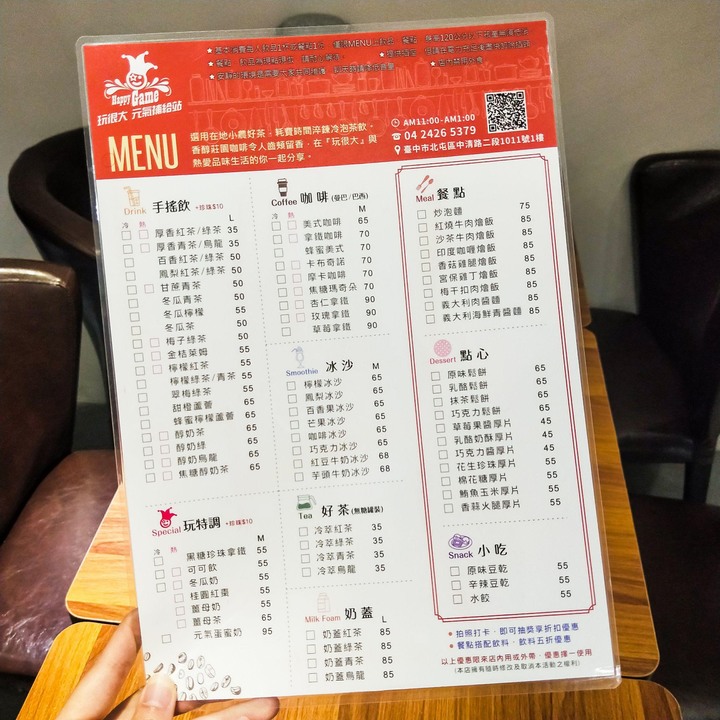 Happy Game
玩很大 元氣補給站
MENU
選用在地小農好茶，耗費時間淬鍊冷泡茶飲。
香醇莊園咖啡令人齒頰留香，在『玩很大』與
熱愛品味生活的你一起分享。
AM11:00-AM1:00
04 2426 5379
臺中市北屯區中清路二段1011號1樓
Drink 手搖飲 +珍珠$10
冷 熱 L
厚香紅茶/綠茶 35
厚香青茶/烏龍 35
百香紅茶/綠茶 50
鳳梨紅茶/綠茶 50
甘蔗青茶 50
冬瓜青茶 50
冬瓜檸檬 55
冬瓜茶 50
梅子綠茶 50
金桔萊姆 55
檸檬紅茶 55
檸檬綠茶/青茶 55
翠梅綠茶 55
甜橙蘆薈 65
蜂蜜檸檬蘆薈 65
醇奶茶 65
醇奶綠 65
醇奶烏龍 65
焦糖醇奶茶 65
Special 玩特調 +珍珠$10
冷 熱 M
黑糖珍珠拿鐵 55
可可飲 55
冬瓜奶 55
桂圓紅棗 55
薑母奶 55
薑母茶 65
元氣蛋蜜奶 95
Coffee 咖啡 (曼巴/巴西)
冷 熱 M
美式咖啡 65
拿鐵咖啡 70
蜂蜜美式 70
卡布奇諾 70
摩卡咖啡 70
焦糖瑪奇朵 70
杏仁拿鐵 90
玫瑰拿鐵 90
草莓拿鐵 90
Smoothie 冰沙 M
檸檬冰沙 65
鳳梨冰沙 65
百香果冰沙 65
芒果冰沙 65
咖啡冰沙 65
巧克力冰沙 65
紅豆牛奶冰沙 68
芋頭牛奶冰沙 68
Tea 好茶 (無糖罐裝)
冷萃紅茶 35
冷萃綠茶 35
冷萃青茶 35
冷萃烏龍 35
Milk Foam 奶蓋 L
奶蓋紅茶 85
奶蓋綠茶 85
奶蓋青茶 85
奶蓋烏龍 85
Meal 餐點
炒泡麵 75
紅燒牛肉燴飯 85
沙茶牛肉燴飯 85
印度咖喱燴飯 85
香菇雞腿燴飯 85
宮保雞丁燴飯 85
梅干扣肉燴飯 85
義大利肉醬麵 85
義大利海鮮青醬麵 85
Dessert 點心
原味鬆餅 65
乳酪鬆餅 65
抹茶鬆餅 65
巧克力鬆餅 65
草莓果醬厚片 45
乳酪奶酥厚片 45
巧克力醬厚片 45
花生珍珠厚片 55
棉花糖厚片 55
鮪魚玉米厚片 55
香蒜火腿厚片 55
Snack 小吃
原味豆乾 55
辛辣豆乾 55
水餃 55
拍照打卡、即可抽獎享折扣優惠
餐點搭配飲料，飲料五折優惠
以上優惠限來店內用或外帶，優惠擇一使用
(本店擁有隨時修改及取消本活動之權利)